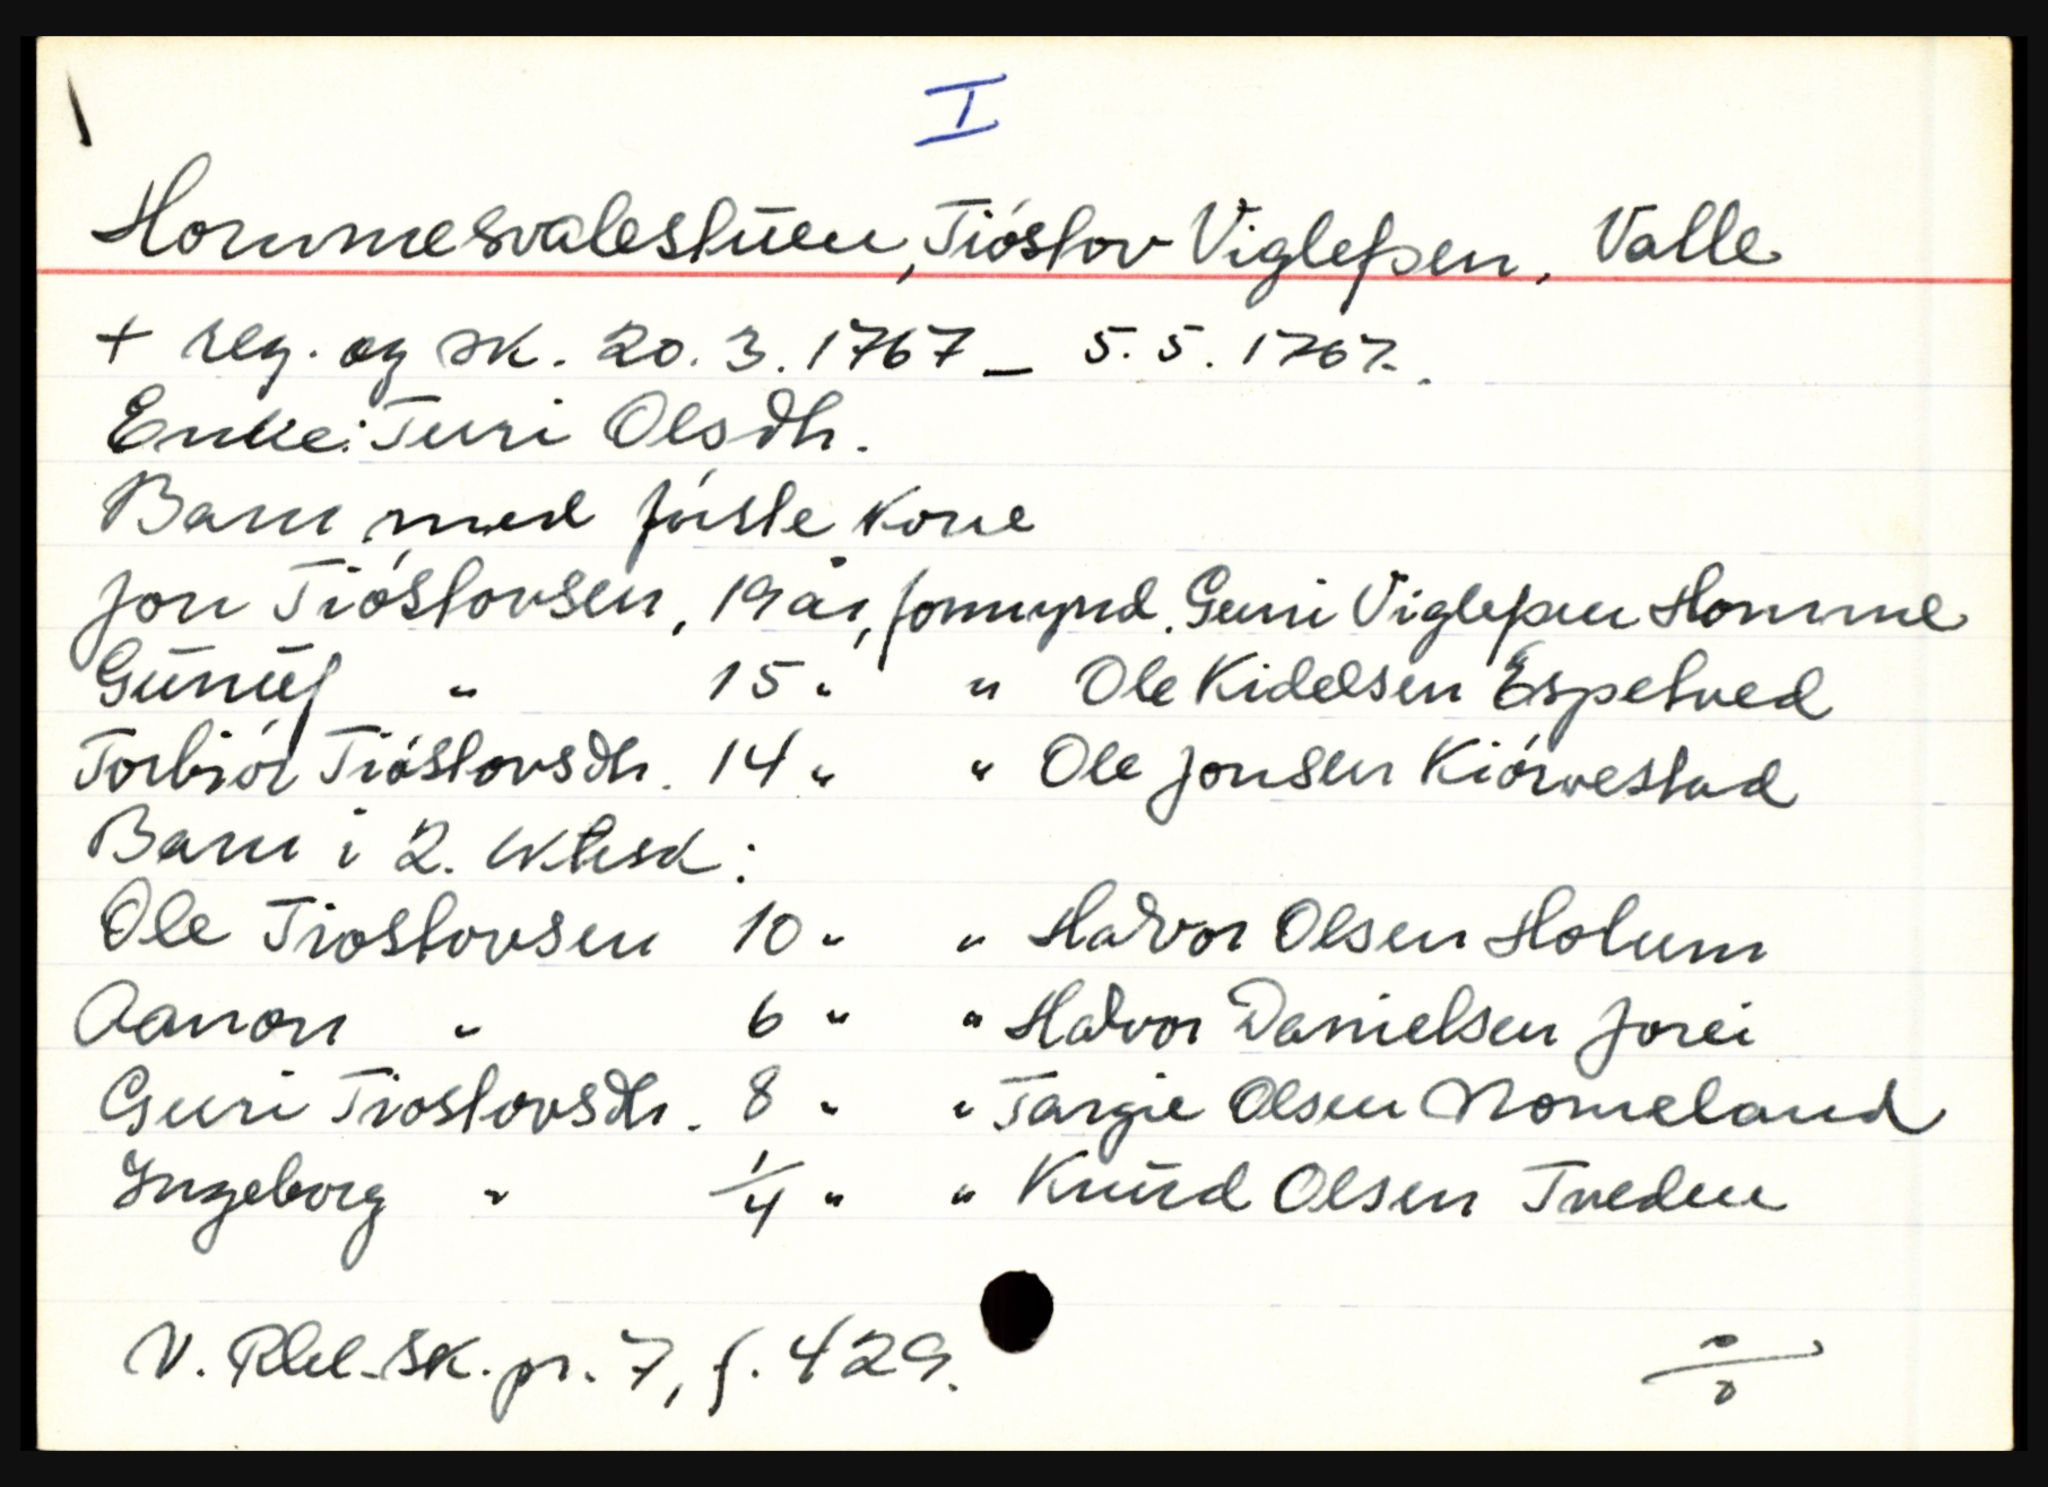 I
Hommesvalestuen, Tióslov Viglefsen, Valle
+ reg. og sk. 20.3.1767 – 5.5.1767.
Enke: Turi Olsdtr.
Barn med fórste kone
Jon Tióslovsen, 19 år, formynd. Guni Viglefsen Homme
Gunuf " 15 " " Ole Kidelsen Espetved
Torbiór Tióslovsdtr. 14 " " Ole Jonsen Kiórvestad
Barn i 2. ektesk:
Ole Tioslovsen 10 " " Halvor Olsen Holum
Aanon " 6 " " Halvor Danielsen Jorei
Guri Tioslovsdtr. 8 " " Targie Olsen Nomeland
Ingeborg " 1/4 " " Knud Olsen Tveden
V. Rbl. sk. pr. 7, f. 429.